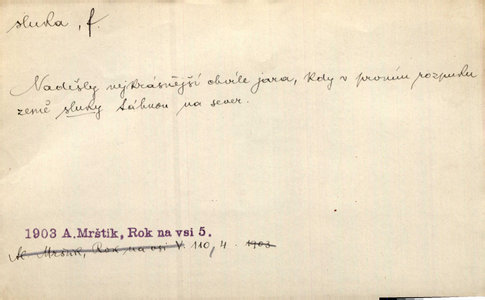 sluka, f.
Nadešly nejkrásnější chvíle jara, kdy v prvním rozpuku
země sluky táhnou na sever.
1903 A. Mrštík, Rok na vsi 5.
Al. Mrštík, Rok na vsi V. 110, 4. 1903